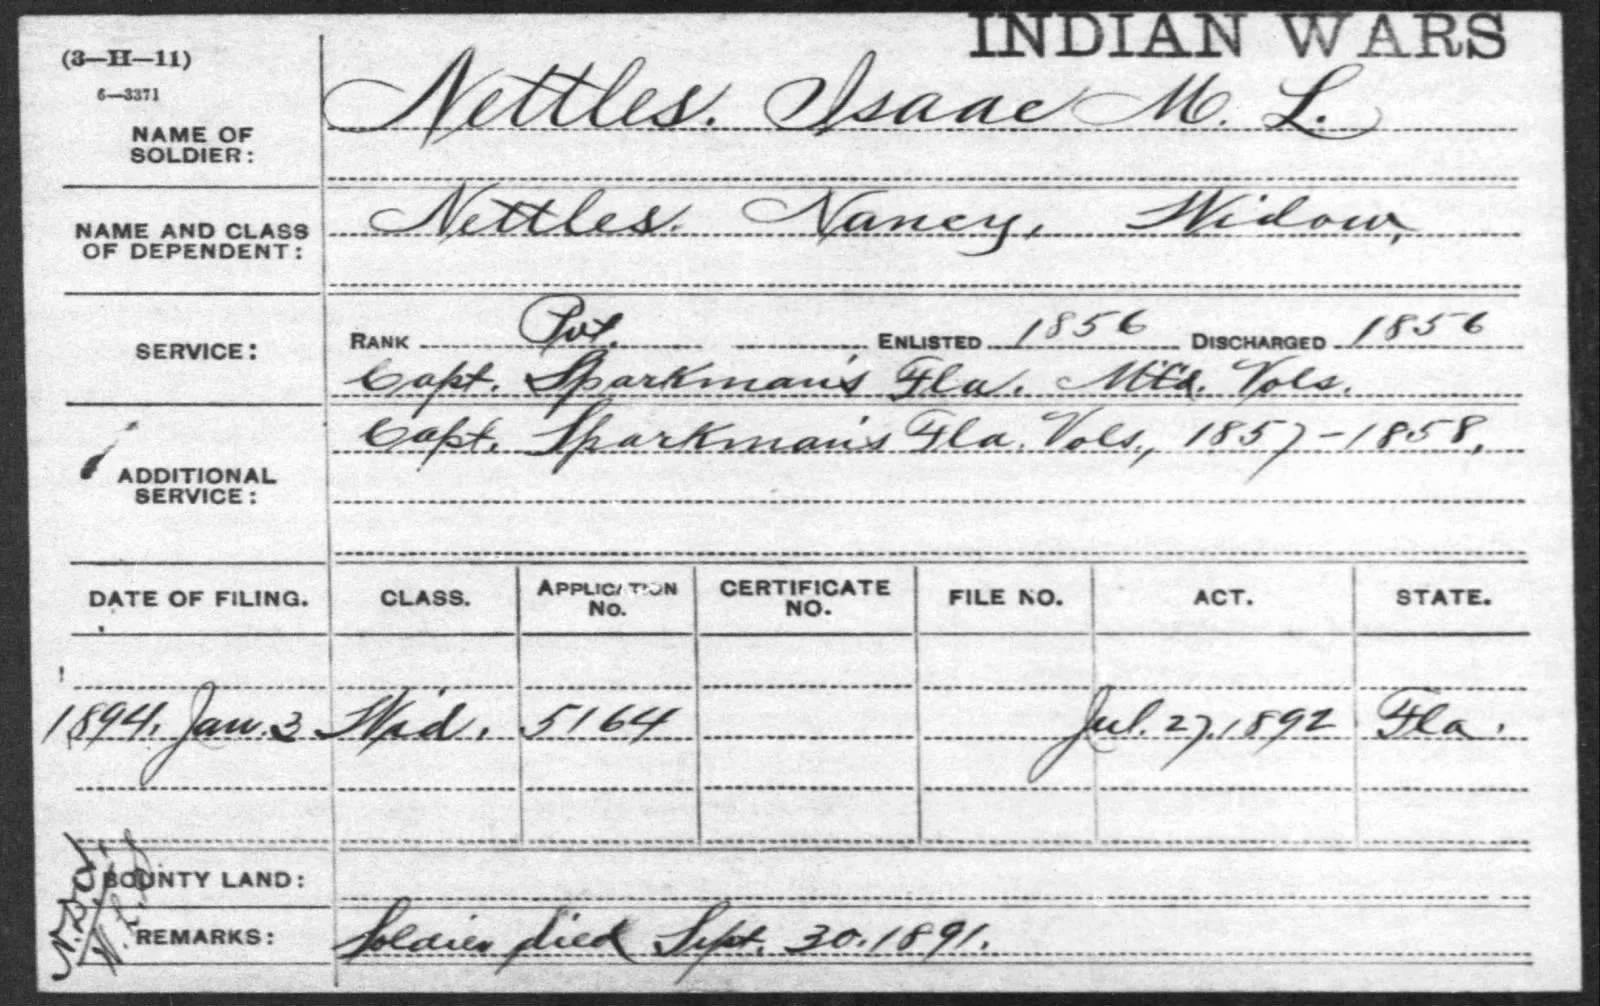 INDIAN WARS
(3—H—11)
6—3371
NAME OF SOLDIER: Nettles. Isaac M. L.
NAME AND CLASS OF DEPENDENT: Nettles. Nancy, Widow,
SERVICE: RANK Pvt. ENLISTED 1856 DISCHARGED 1856
Capt. Sparkman's Fla. Mtd. Vols.
ADDITIONAL SERVICE: Capt. Sparkman's Fla. Vols., 1857-1858,
DATE OF FILING. CLASS. APPLICATION No. CERTIFICATE NO. FILE NO. ACT. STATE.
1894. Jan. 3 Wid. 5164 Jul. 27, 1892 Fla.
BOUNTY LAND:
REMARKS: Soldier died Sept. 30. 1891.